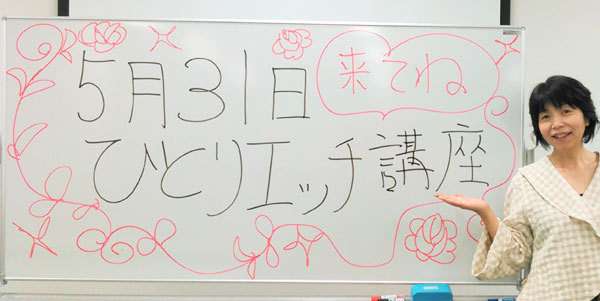 5月31日
来てね
ひとりエッチ講座